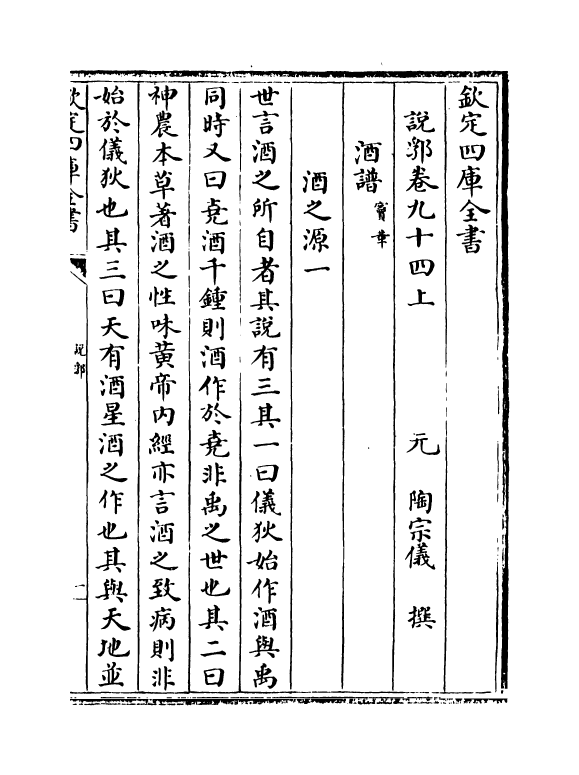 欽定四庫全書
說郛卷九十四上 元 陶宗儀 撰
酒譜 竇苹
酒之源一
世言酒之所自者其說有三其一曰儀狄始作酒與禹
同時又曰堯酒千鍾則酒作於堯非禹之世也其二曰
神農本草著酒之性味黃帝內經亦言酒之致病則非
始於儀狄也其三曰天有酒星酒之作也其與天地並
欽定四庫全書
說郛